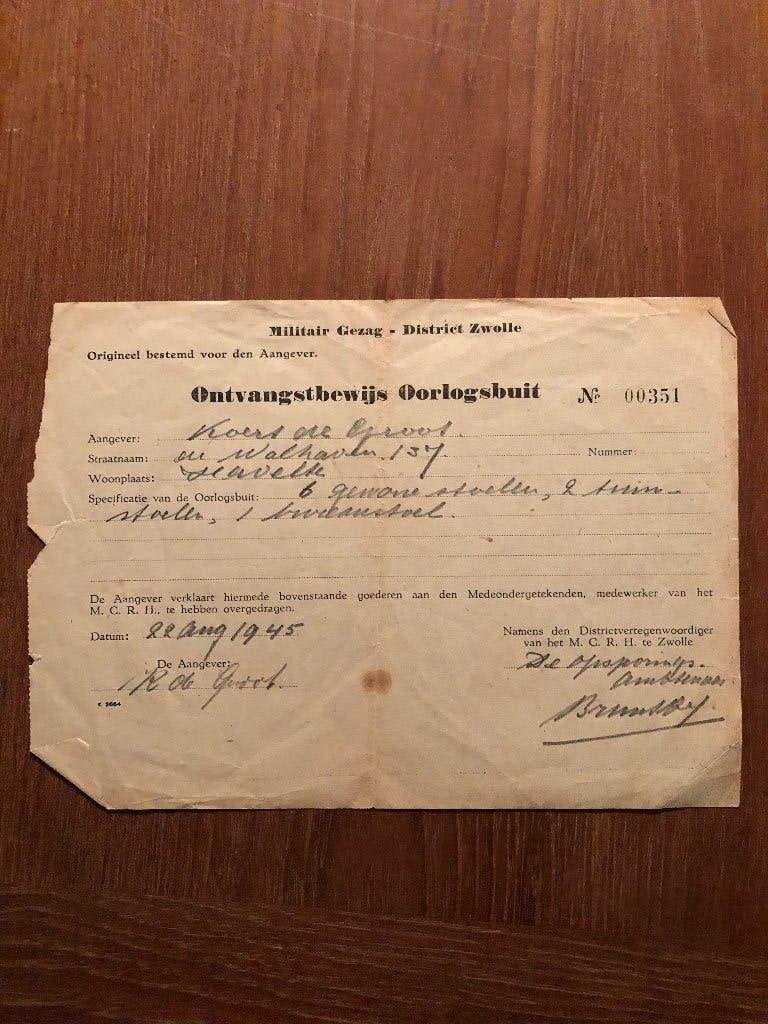 Militair Gezag - District Zwolle
Origineel bestemd voor den Aangever.
Ontvangstbewijs Oorlogsbuit № 00351
Aangever: Koert de Groot.
Straatnaam: 137 Nummer:
Woonplaats: Havelte
Specificatie van de Oorlogsbuit: 6 gewone stoelen, 2 tuin-
stoelen, 1 bureaustoel.
De Aangever verklaart hiermede bovenstaande goederen aan den Medeondergetekenden, medewerker van het
M. C. R. H., te hebben overgedragen.
Datum: 22 Aug 1945
Namens den Districtvertegenwoordiger
van het M. C. R. H. te Zwolle
De opsporings-
ambtenaar
De Aangever:
K de Groot.
K 2664